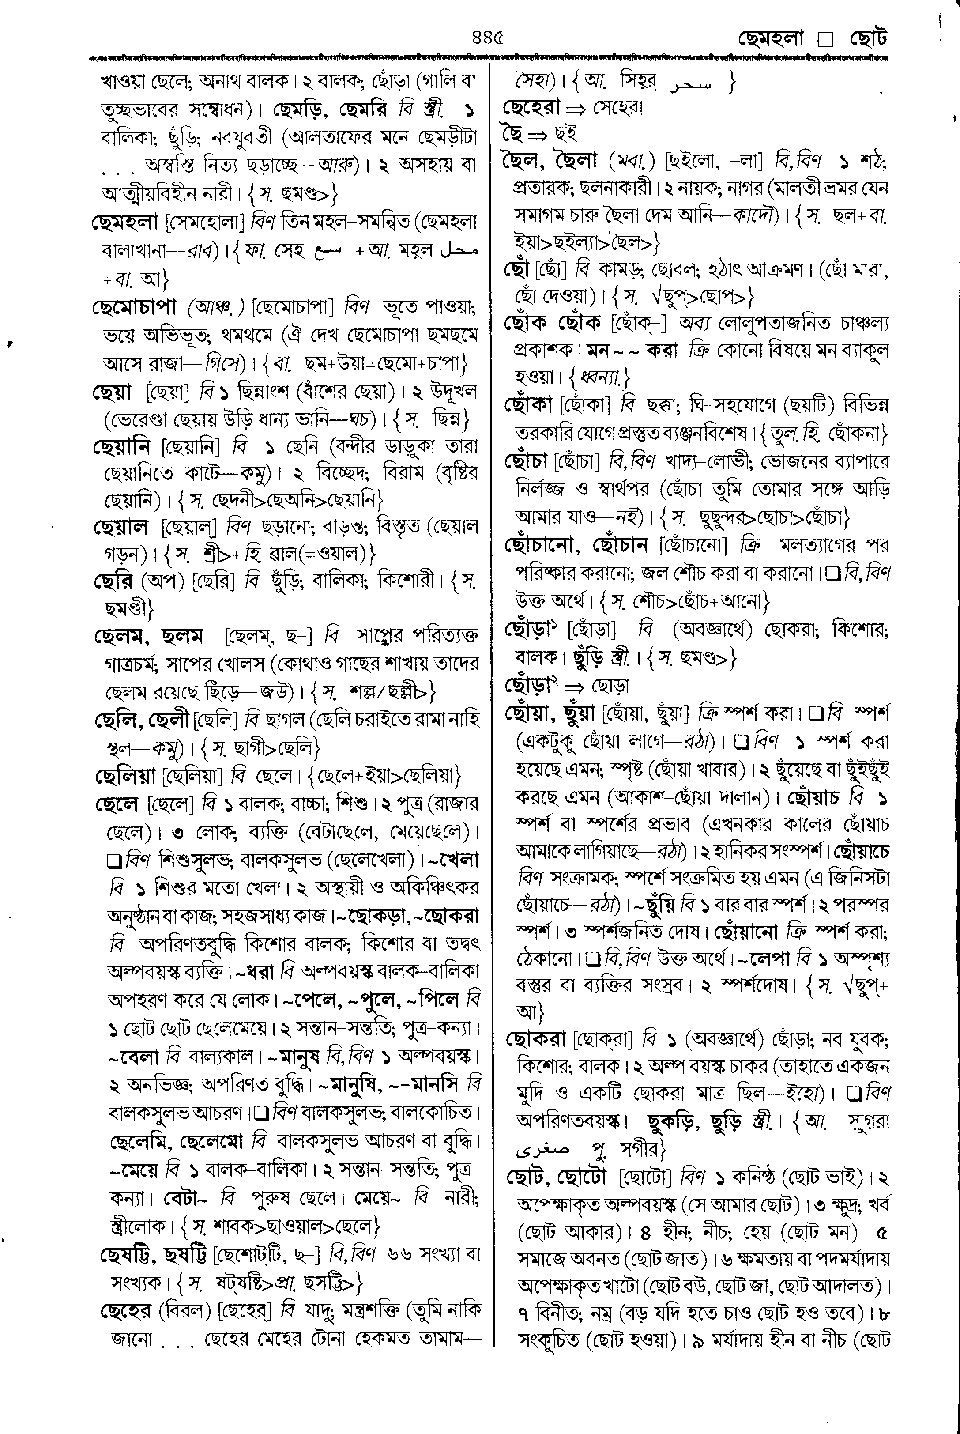 ৪৪৫
ছেমহলা □ ছোট
খাওয়া ছেলে; অনাথ বালক। ২ বালক; ছোঁড়া (গালি বা
তুচ্ছভাবের সম্বোধন)। ছেমড়ি, ছেমরি বি স্ত্রী. ১
বালিকা; ছুঁড়ি; নবযুবতী (আলতাফের মনে ছেমড়ীটা
. . . অস্বস্তি নিত্য ছড়াচ্ছে--আরু)। ২ অসহায় বা
আত্মীয়বিহীন নারী। {স. ছমণ্ড>}
ছেমহলা [সেমহোলা] বিণ তিন মহল-সমন্বিত (ছেমহলা
বালাখানা—রাব)। {ফা. সেহ سع +আ. মহল محل
+বা. আ}
ছেমোচাপা (আঞ্চ.) [ছেমোচাপা] বিণ ভূতে পাওয়া;
ভয়ে অভিভূত; থমথমে (ঐ দেখ ছেমোচাপা ছমছমে
আসে রাজা—গিসে)। {বা. ছম+উয়া=ছেমো+চাপা}
ছেয়া [ছেয়া] বি ১ ছিন্নাংশ (বাঁশের ছেয়া)। ২ উদূখল
(ভেরেণ্ডা ছেয়ায় উড়ি ধান্য ভানি—ঘচ)। {স. ছিন্ন}
ছেয়ানি [ছেয়ানি] বি ১ ছেনি (বন্দীর ডাড়ুকা তারা
ছেয়ানিতে কাটে—কমু)। ২ বিচ্ছেদ; বিরাম (বৃষ্টির
ছেয়ানি)। {স. ছেদনী>ছেঅনি>ছেয়ানি}
ছেয়াল [ছেয়াল্] বিণ ছড়ানো; বাড়ন্ত; বিস্তৃত (ছেয়াল
গড়ন)। {স. শ্রী>+ হি. রাল(=ওয়াল)}
ছেরি (অপ) [ছেরি] বি ছুঁড়ি; বালিকা; কিশোরী। {স.
ছমণ্ডী}
ছেলম, ছলম [ছেলম্, ছ-] বি সাপের পরিত্যক্ত
গাত্রচর্ম; সাপের খোলস (কোথাও গাছের শাখায় তাদের
ছেলম রয়েছে ছিঁড়ে—জউ)। {স. শল্ল/ছল্লী>}
ছেলি, ছেলী [ছেলি] বি ছাগল (ছেলি চরাইতে রামা নাহি
স্থল—কমু)। {স. ছাগী>ছেলি}
ছেলিয়া [ছেলিয়া] বি ছেলে। {ছেলে+ইয়া>ছেলিয়া}
ছেলে [ছেলে] বি ১ বালক; বাচ্চা; শিশু। ২ পুত্র (রাজার
ছেলে)। ৩ লোক; ব্যক্তি (বেটাছেলে, মেয়েছেলে)।
❏ বিণ শিশুসুলভ; বালকসুলভ (ছেলেখেলা)। ~খেলা
বি ১ শিশুর মতো খেলা। ২ অস্থায়ী ও অকিঞ্চিৎকর
অনুষ্ঠান বা কাজ; সহজসাধ্য কাজ। ~ছোকড়া, ~ছোকরা
বি অপরিণতবুদ্ধি কিশোর বালক; কিশোর বা তদ্বৎ
অল্পবয়স্ক ব্যক্তি। ~ধরা বি অল্পবয়স্ক বালক-বালিকা
অপহরণ করে যে লোক। ~পেলে, ~পুলে, ~পিলে বি
১ ছোট ছোট ছেলেমেয়ে। ২ সন্তান-সন্ততি; পুত্র-কন্যা।
~বেলা বি বাল্যকাল। ~মানুষ বি,বিণ ১ অল্পবয়স্ক।
২ অনভিজ্ঞ; অপরিণত বুদ্ধি। ~মানুষি, ~-মানসি বি
বালকসুলভ আচরণ। ❏ বিণ বালকসুলভ; বালকোচিত।
ছেলেমি, ছেলেমো বি বালকসুলভ আচরণ বা বুদ্ধি।
~মেয়ে বি ১ বালক-বালিকা। ২ সন্তান সন্ততি; পুত্র
কন্যা। বেটা~ বি পুরুষ ছেলে। মেয়ে~ বি নারী;
স্ত্রীলোক। {স. শাবক>ছাওয়াল>ছেলে}
ছেষট্টি, ছষট্টি [ছেশোট্‌টি, ছ-] বি,বিণ ৬৬ সংখ্যা বা
সংখ্যক। {স. ষট্‌ষষ্টি>প্রা. ছসট্ঠি>}
ছেহের (বিরল) [ছেহের্] বি যাদু; মন্ত্রশক্তি (তুমি নাকি
জানো . . . ছেহের মেহের টোনা হেকমত তামাম—
সেহা)। {আ. সিহ্‌র سحر }
ছেহেরা ⇒ সেহেরা
ছৈ ⇒ ছই
ছৈল, ছৈলা (মবা.) [ছইলো, -লা] বি,বিণ ১ শঠ;
প্রতারক; ছলনাকারী। ২ নায়ক; নাগর (মালতী ভ্রমর যেন
সমাগম চারু ছৈলা দেম আনি—কাদৌ)। {স. ছল+বা.
ইয়া>ছইল্যা>ছৈল>}
ছোঁ [ছোঁ] বি কামড়; ছোবল; হঠাৎ আক্রমণ। (ছোঁ মারা,
ছোঁ দেওয়া)। {স. √ছুপ্>ছোপ>}
ছোঁক ছোঁক [ছোঁক্-] অব্য লোলুপতাজনিত চাঞ্চল্য
প্রকাশক। মন~ ~ করা ক্রি কোনো বিষয়ে মন ব্যাকুল
হওয়া। {ধ্বন্যা.}
ছোঁকা [ছোঁকা] বি ছক্কা; ঘি-সহযোগে (ছয়টি) বিভিন্ন
তরকারি যোগে প্রস্তুত ব্যঞ্জনবিশেষ। {তুল. হি. ছোঁকনা}
ছোঁচা [ছোঁচা] বি,বিণ খাদ্য-লোভী; ভোজনের ব্যাপারে
নির্লজ্জ ও স্বার্থপর (ছোঁচা তুমি তোমার সঙ্গে আড়ি
আমার যাও—নই)। {স. ছুছুন্দর>ছোচা>ছোঁচা}
ছোঁচানো, ছোঁচান [ছোঁচানো] ক্রি মলত্যাগের পর
পরিষ্কার করানো; জল শৌচ করা বা করানো। ❏ বি,বিণ
উক্ত অর্থে। {স. শৌচ>ছোঁচ+আনো}
ছোঁড়া১ [ছোঁড়া] বি (অবজ্ঞার্থে) ছোকরা; কিশোর;
বালক। ছুঁড়ি স্ত্রী.। {স. ছমণ্ড>}
ছোঁড়া২ ⇒ ছোড়া
ছোঁয়া, ছুঁয়া [ছোঁয়া, ছুঁয়া] ক্রি স্পর্শ করা। ❏ বি স্পর্শ
(একটুকু ছোঁয়া লাগে—রঠা)। ❏ বিণ ১ স্পর্শ করা
হয়েছে এমন; স্পৃষ্ট (ছোঁয়া খাবার)। ২ ছুঁয়েছে বা ছুঁইছুঁই
করছে এমন (আকাশ-ছোঁয়া দালান)। ছোঁয়াচ বি ১
স্পর্শ বা স্পর্শের প্রভাব (এখনকার কালের ছোঁয়াচ
আমাকে লাগিয়াছে—রঠা)। ২ হানিকর সংস্পর্শ। ছোঁয়াচে
বিণ সংক্রামক; স্পর্শে সংক্রমিত হয় এমন (এ জিনিসটা
ছোঁয়াচে—রঠা)। ~ছুঁয়ি বি ১ বার বার স্পর্শ। ২ পরস্পর
স্পর্শ। ৩ স্পর্শজনিত দোষ। ছোঁয়ানো ক্রি স্পর্শ করা;
ঠেকানো। ❏ বি,বিণ উক্ত অর্থে। ~লেপা বি ১ অস্পৃশ্য
বস্তুর বা ব্যক্তির সংস্রব। ২ স্পর্শদোষ। {স. √ছুপ্+
আ}
ছোকরা [ছোক্‌রা] বি ১ (অবজ্ঞার্থে) ছোঁড়া; নব যুবক;
কিশোর; বালক। ২ অল্প বয়স্ক চাকর (তাহাতে একজন
মুদি ও একটি ছোকরা মাত্র ছিল—ইহো)। ❏ বিণ
অপরিণতবয়স্ক। ছুকড়ি, ছুড়ি স্ত্রী.। {আ. সুগরা
صغرى পু. সগীর}
ছোট, ছোটো [ছোটো] বিণ ১ কনিষ্ঠ (ছোট ভাই)। ২
অপেক্ষাকৃত অল্পবয়স্ক (সে আমার ছোট)। ৩ ক্ষুদ্র; খর্ব
(ছোট আকার)। ৪ হীন; নীচ; হেয় (ছোট মন) ৫
সমাজে অবনত (ছোট জাত)। ৬ ক্ষমতায় বা পদমর্যাদায়
অপেক্ষাকৃত খাটো (ছোট বউ, ছোট জা, ছোট আদালত)।
৭ বিনীত; নম্র (বড় যদি হতে চাও ছোট হও তবে)। ৮
সংকুচিত (ছোট হওয়া)। ৯ মর্যাদায় হীন বা নীচ (ছোট